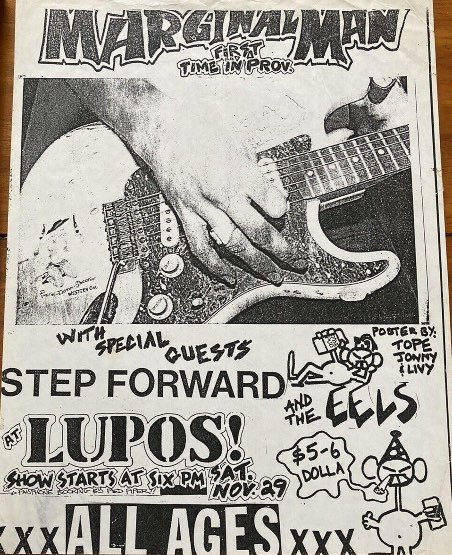 MARGINAL MAN
FIRST
TIME IN PROV.
WITH
SPECIAL
GUESTS
STEP FORWARD
AND
THE EELS
POSTER BY:
TOPE
JONNY
& LIVY
AT LUPOS!
$5-6
DOLLA
SHOW STARTS AT SIX PM SAT.
NOV. 29
BOOKING BY PIED PIPER
XXX ALL AGES XXX